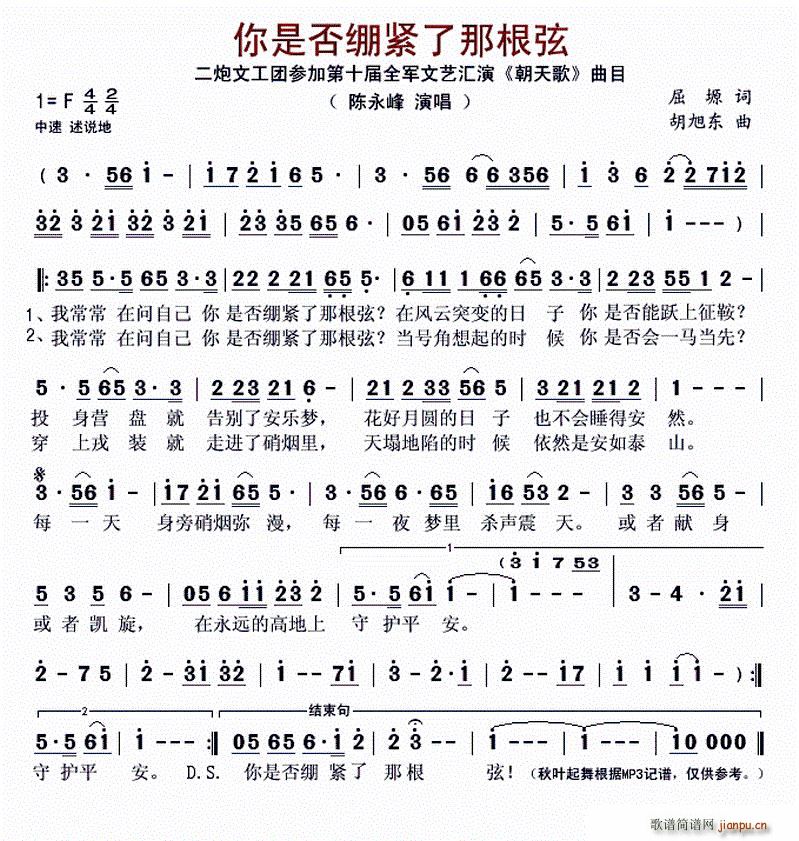 你是否绷紧了那根弦
二炮文工团参加第十届全军文艺汇演《朝天歌》曲目
1=F 4/4 2/4 （陈永峰 演唱） 屈塬 词
中速 述说地 胡旭东 曲
( 3 · 56 1 - | 1 7 2 1 6 5 · | 3 · 56 6 6 356 | 1 3 6 2 2 712 |
32 3 21 32 3 21 | 23 35 65 6 · | 05 61 23 2 | 5 · 5 61 | 1 - - - ) |
‖: 35 5·5 65 3·3 | 22 2 21 65 5· | 6 11 1 66 65 3·3 | 2 23 55 1 2 - |
1、我常常 在问自己 你 是否绷紧了那根弦？在风云突变的日 子 你 是否能跃上征鞍？
2、我常常 在问自己 你 是否绷紧了那根弦？当号角想起的时 候 你 是否会一马当先？
5 · 5 65 3 · 3 | 2 23 21 6 - | 21 2 33 65 5 | 3 21 21 2 | 1 - - - |
投 身营 盘 就 告别了安乐梦， 花好月圆的日 子 也不会睡得安 然。
穿 上戎 装 就 走进了硝烟里， 天塌地陷的时 候 依然是安如泰 山。
3 · 56 1 - | 17 21 65 5 · | 3 · 56 6 · 5 | 16 53 2 - | 3 3 56 5 - |
每 一 天 身旁硝烟弥 漫， 每 一 夜 梦里 杀声震 天。 或 者 献 身
1 ( 3 1 7 53
5 3 5 6 - | 05 6 11 23 2 | 5 · 5 61 1 - | 1 - - - | 3 - 4 · 21 |
或 者 凯 旋， 在永远的高地上 守 护平 安。
2 - 7 5 | 2 - 31 32 | 1 - - 71 | 3 - 2·1 | 2 - - 17 | 1 1 1 1 1 - ) :‖
2 结束句
5·5 61 | 1 - - :‖ 05 65 6·1 2 | 2 3 - - | 1 - - - | 1 - - - | 10 000 ‖
守 护平 安。 D.S. 你是否绷 紧了 那根 弦！（秋叶起舞根据MP3记谱，仅供参考。）
歌谱简谱网 jianpu.cn